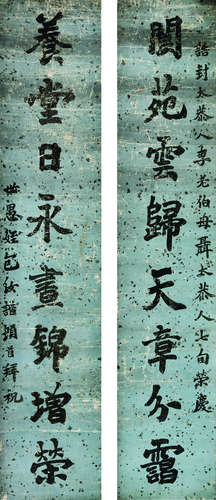 誥封太恭人李老伯母聶太恭人七旬榮慶
閬苑雲歸天章分靄
養堂日永晝錦增榮
世愚姪包汝諧頓首拜祝